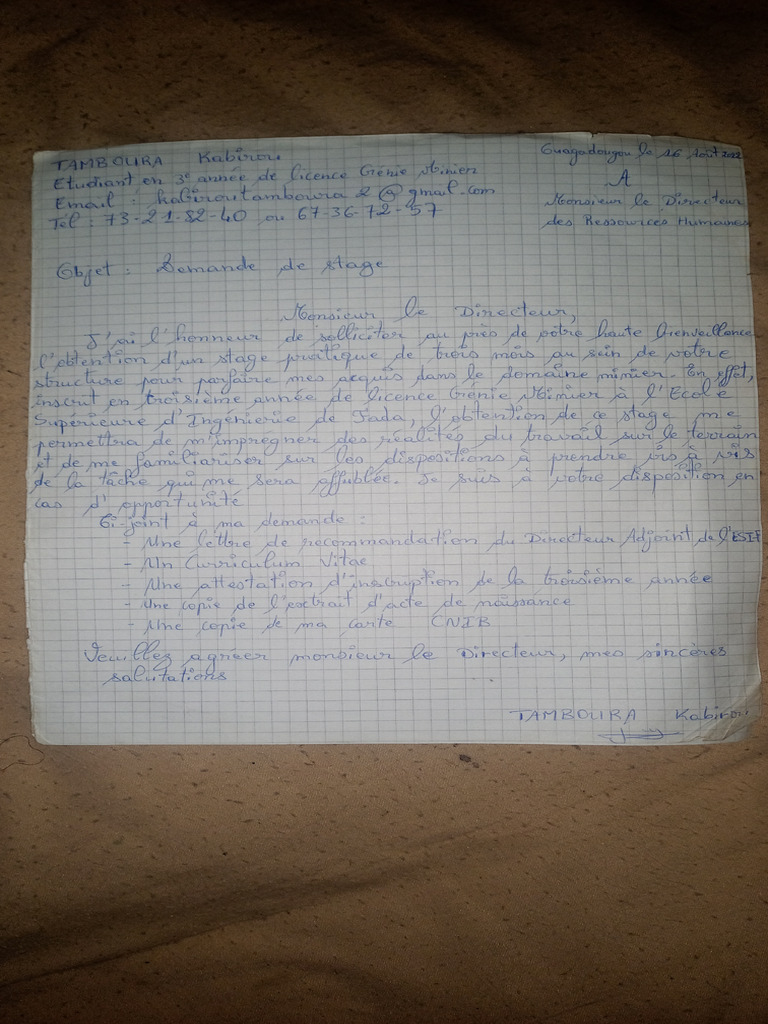 TAMBOURA Kabirou
Ouagadougou le 16 Août 2022
Etudiant en 3e année de licence Génie Minier
A
Email : kabiroutamboura2@gmail.com
Monsieur le Directeur
Tél : 73-21-82-40 ou 67-36-72-57
des Ressources Humaines
Objet : Demande de stage
Monsieur le Directeur,
J'ai l'honneur de solliciter au près de vôtre haute bienveillance
l'obtention d'un stage pratique de trois mois au sein de votre
structure pour parfaire mes acquis dans le domaine minier. En effet,
inscrit en troisième année de licence Génie Minier à l'Ecole
Supérieure d'Ingénierie de Fada, l'obtention de ce stage me
permettra de m'impregner des réalités du travail sur le terrain
et de me familiariser sur les dispositions à prendre vis à vis
de la tâche qui me sera affublée. Je suis à votre disposition en
cas d'opportunité
Ci-joint à ma demande :
- Une lettre de recommandation du Directeur Adjoint de l'ESIF
- Un Curriculum Vitae
- Une attestation d'inscruption de la troisième année
- Une copie de l'extrait d'acte de naissance
- Une copie de ma carte CNIB
Veuillez agréer monsieur le Directeur, mes sincères
salutations
TAMBOURA Kabirou